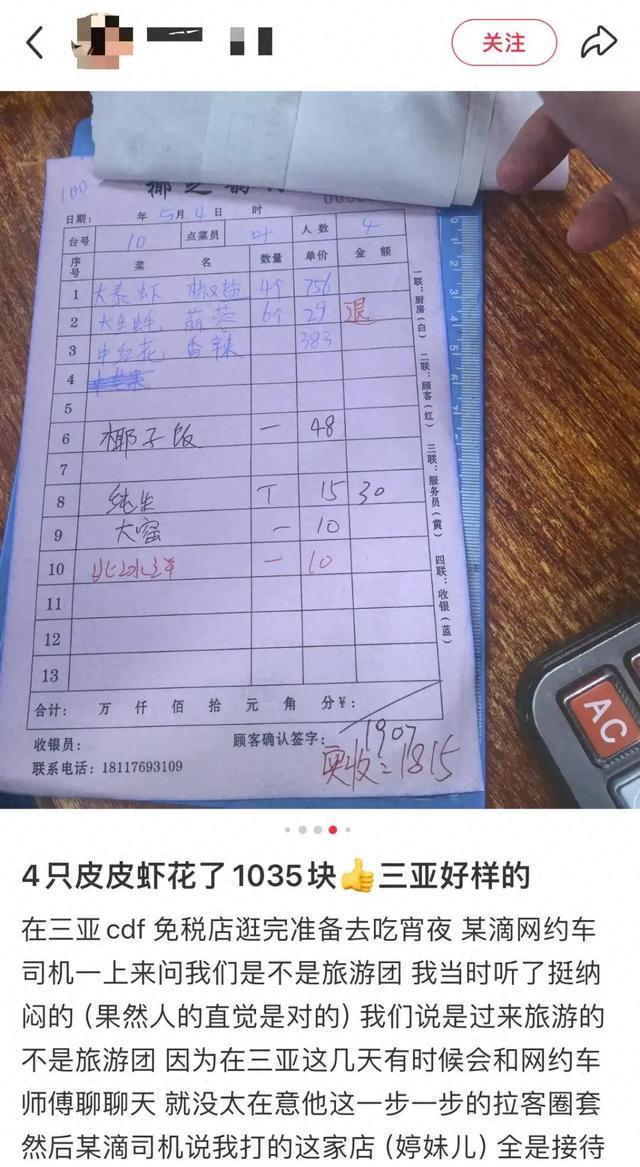 关注
100
日期: 年 5 月 4 日 时
台号 10 点菜员 叶 人数 4
序号 菜 名 数量 单价 金额
1 大泰虾 椒盐 4个 756
2 大生蚝 蒜蓉 6个 29 退
3 中红花 香辣 383
4
5
6 椰子饭 一 48
7
8 纯生 T 15 30
9 大窑 一 10
10 一 10
11
12
13
合计: 万 仟 佰 拾 元 角 分¥:
1907
收银员: 顾客确认签字:
联系电话: 18117693109
实收=1815
一联:厨房(白) 二联:顾客(红) 三联:服务员(黄) 四联:收银(蓝)
AC
4只皮皮虾花了1035块👍三亚好样的
在三亚cdf 免税店逛完准备去吃宵夜 某滴网约车
司机一上来问我们是不是旅游团 我当时听了挺纳
闷的 (果然人的直觉是对的) 我们说是过来旅游的
不是旅游团 因为在三亚这几天有时候会和网约车
师傅聊聊天 就没太在意他这一步一步的拉客圈套
然后某滴司机说我打的这家店 (婷妹儿) 全是接待